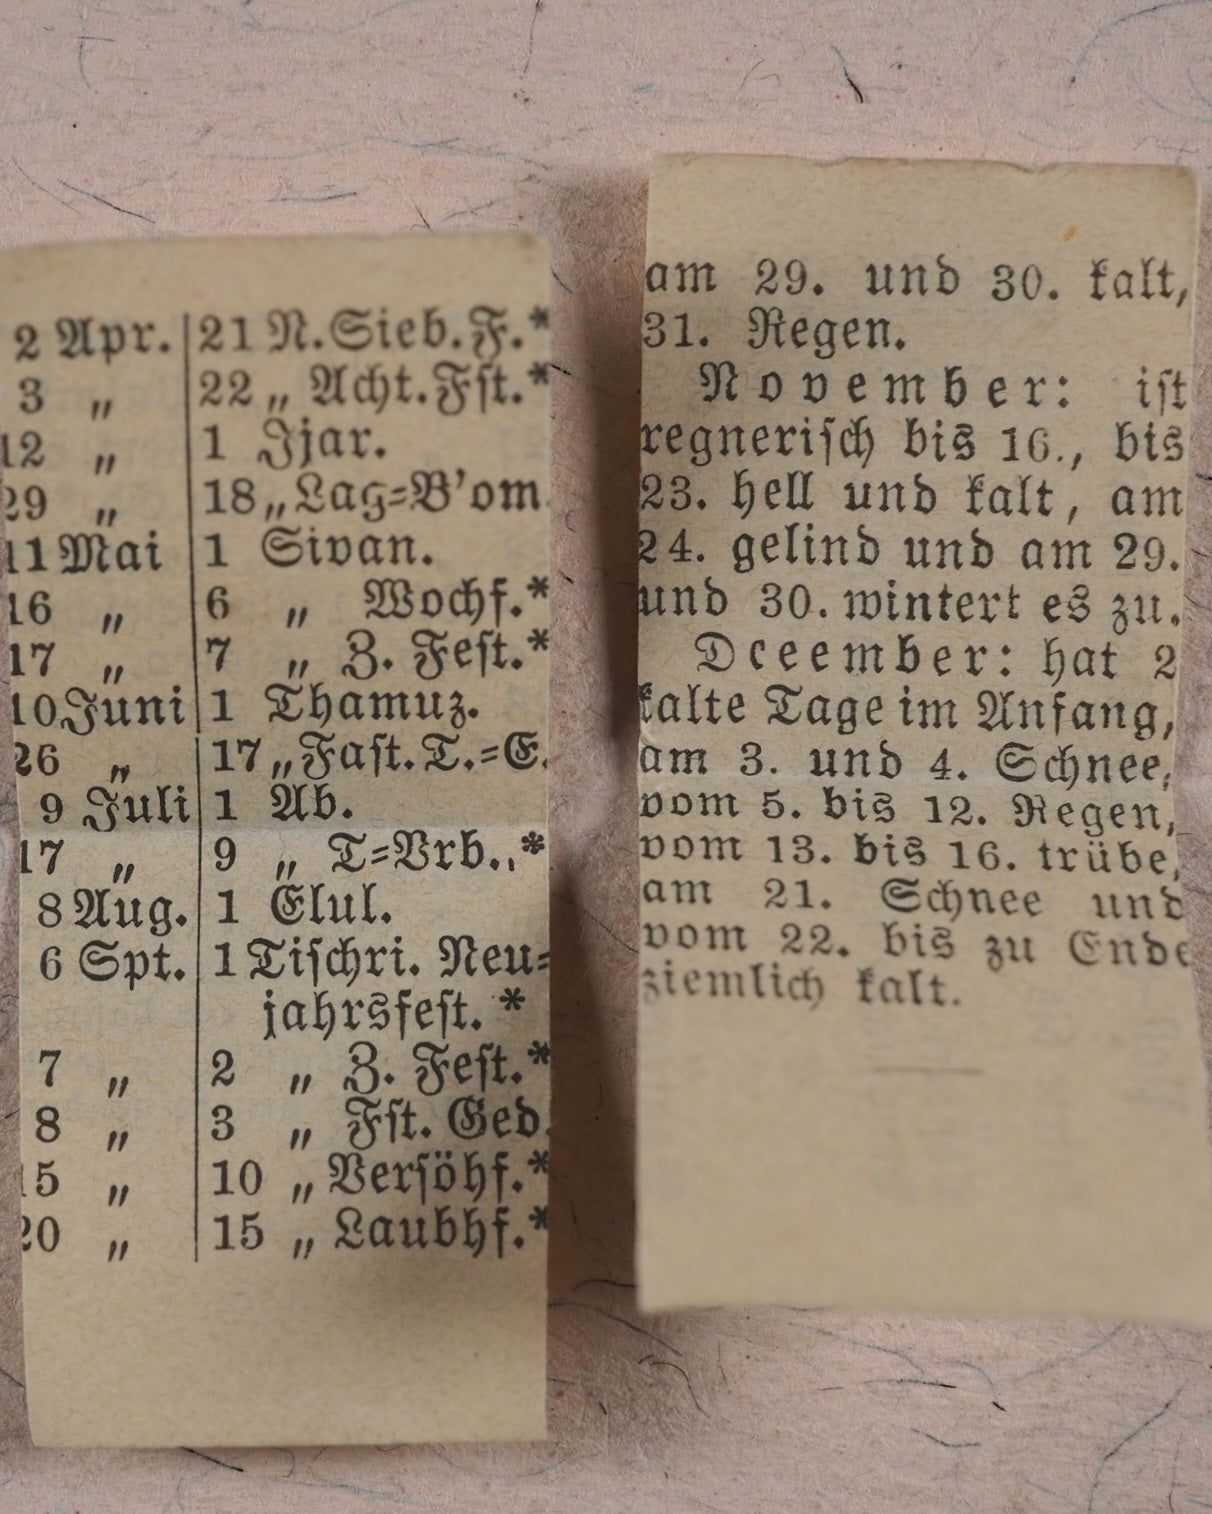 2 Apr. 21 N. Sieb. F.*
3 „ 22 „ Acht. Fst.*
12 „ 1 Jjar.
29 „ 18 „ Lag=B'om.
11 Mai 1 Sivan.
16 „ 6 „ Wochf.*
17 „ 7 „ Z. Fest.*
10 Juni 1 Thamuz.
26 „ 17 „ Fast. T.=E.
9 Juli 1 Ab.
17 „ 9 „ T=Vrb..*
8 Aug. 1 Elul.
6 Spt. 1 Tischri. Neu=
jahrsfest. *
7 „ 2 „ Z. Fest.*
8 „ 3 „ Fst. Ged.
15 „ 10 „ Versöhf.*
20 „ 15 „ Laubhf.*
am 29. und 30. kalt,
31. Regen.
November: ist
regnerisch bis 16., bis
23. hell und kalt, am
24. gelind und am 29.
und 30. wintert es zu.
Dceember: hat 2
kalte Tage im Anfang,
am 3. und 4. Schnee,
vom 5. bis 12. Regen,
vom 13. bis 16. trübe,
am 21. Schnee und
vom 22. bis zu Ende
ziemlich kalt.